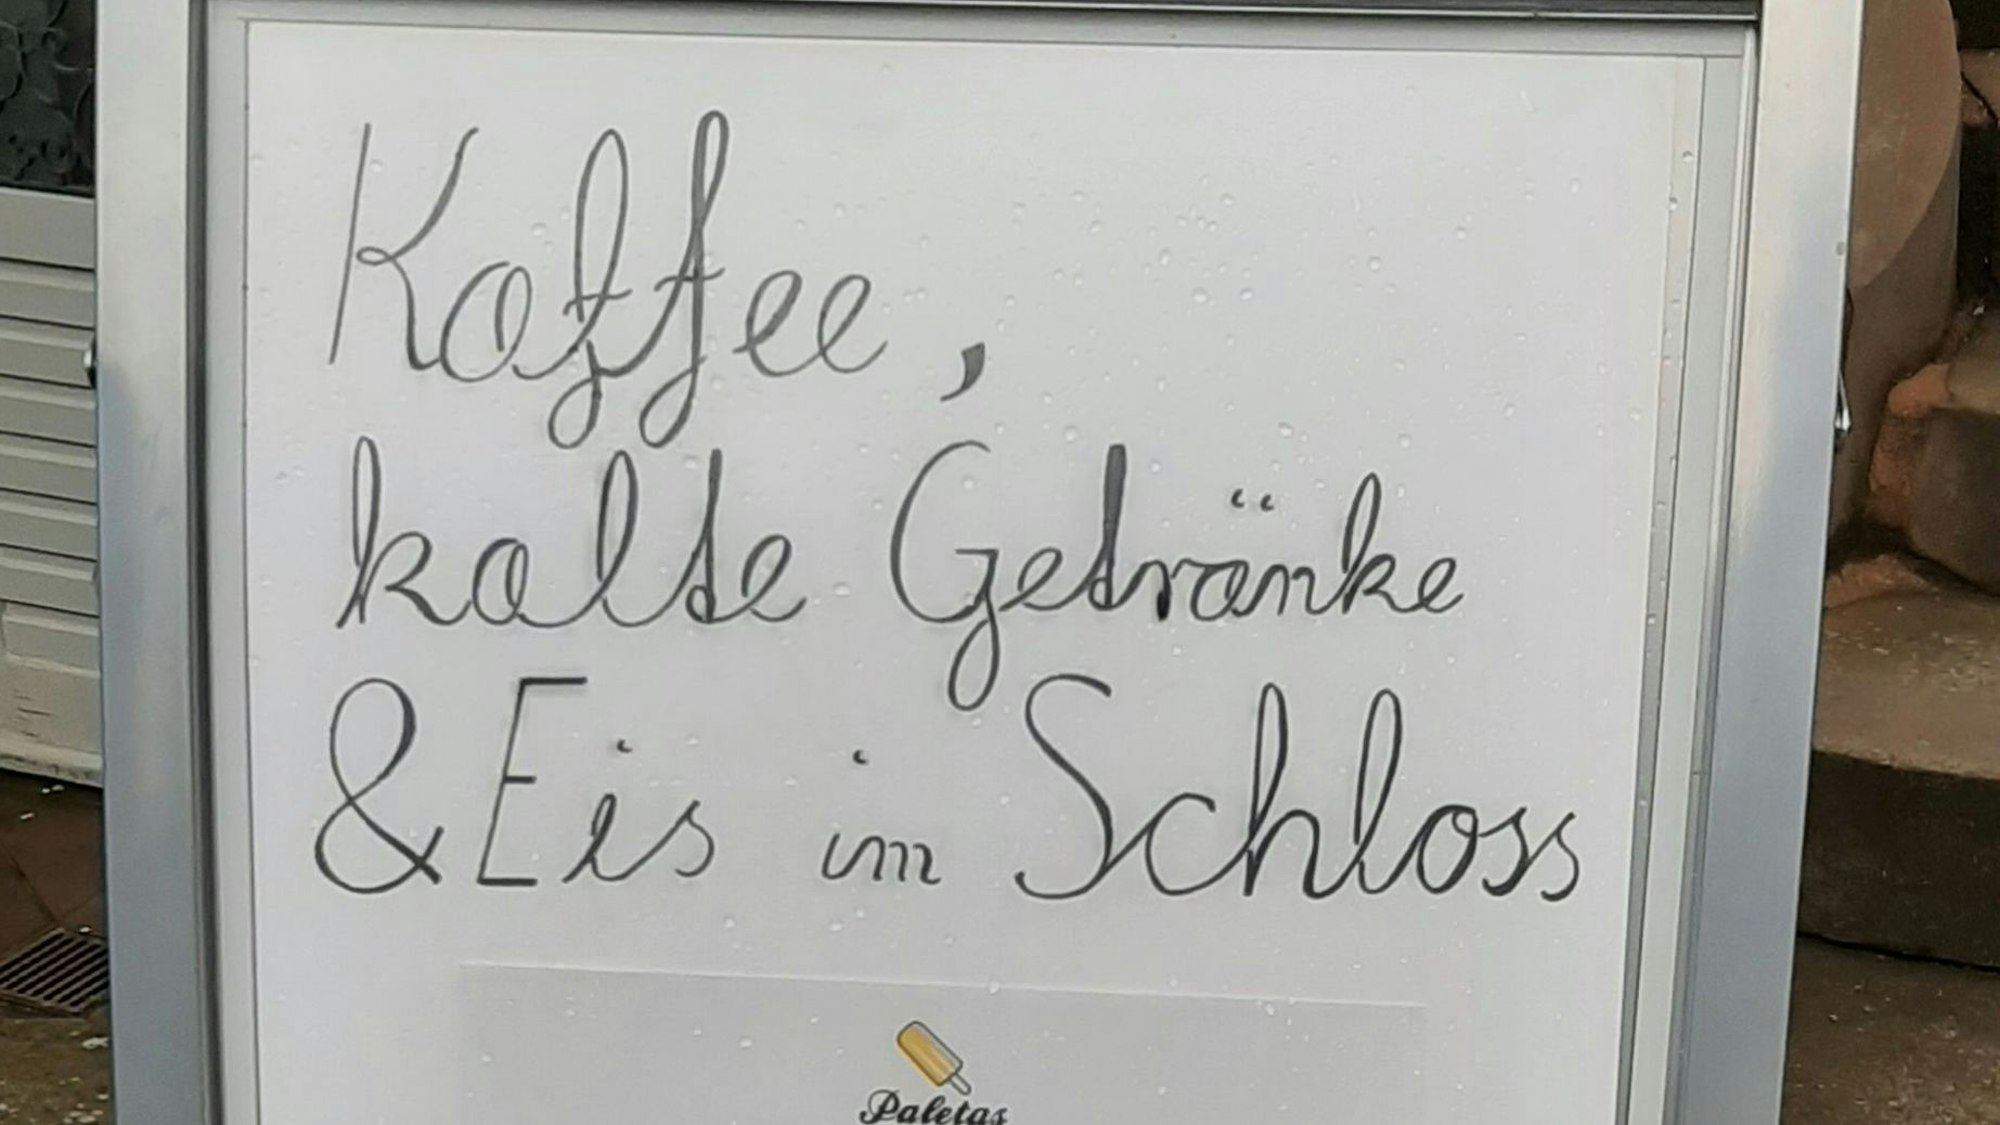 Kaffee,
kalte Getränke
& Eis im Schloss
Paletas